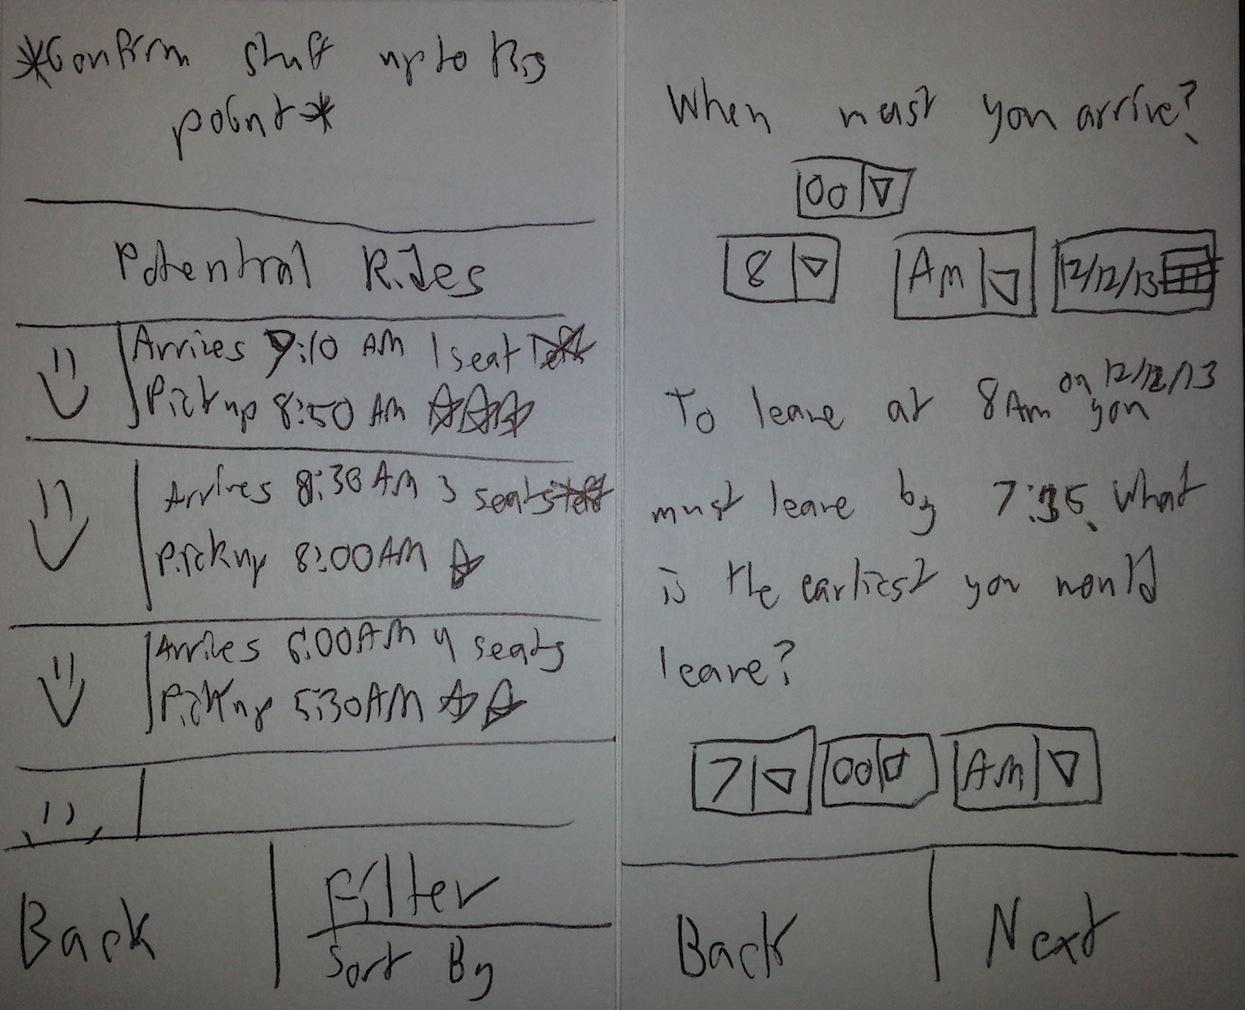 *Confirm stuff up to this
point*
Potential Rides
Arrives 9:10 AM 1 seat left
Pickup 8:50 AM
Arrives 8:30 AM 3 seats left
Pickup 8:00 AM
Arrives 6:00 AM 4 seats
Pickup 5:30 AM
Back
Filter
Sort By
When must you arrive?
00
8 AM 12/12/13
To leave at 8 Am on 12/12/13 you
must leave by 7:35. What
is the earliest you would
leave?
7 00 AM
Back Next